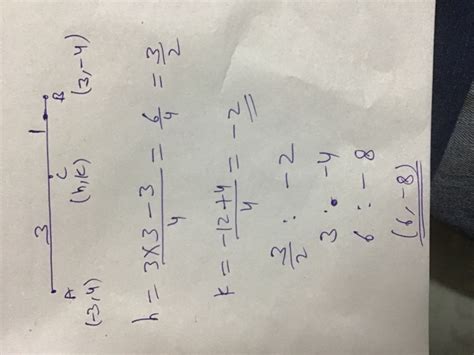 3 1
A C B
(-3,4) (h,k) (3,-4)
h = 3×3-3/4 = 6/4 = 3/2
k = -12+4/4 = -2
3/2 : -2
3 : -4
6 : -8
(6,-8)